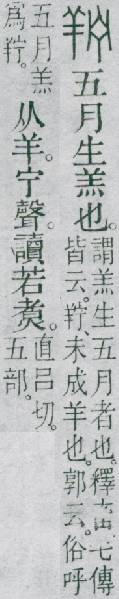 羜 五月生羔也。
謂羔生五月者也。釋嘼毛傳
皆云。羜、未成羊也。郭云。俗呼
五月羔
爲羜。
从羊。宁聲。讀若煑。
直呂切。
五部。